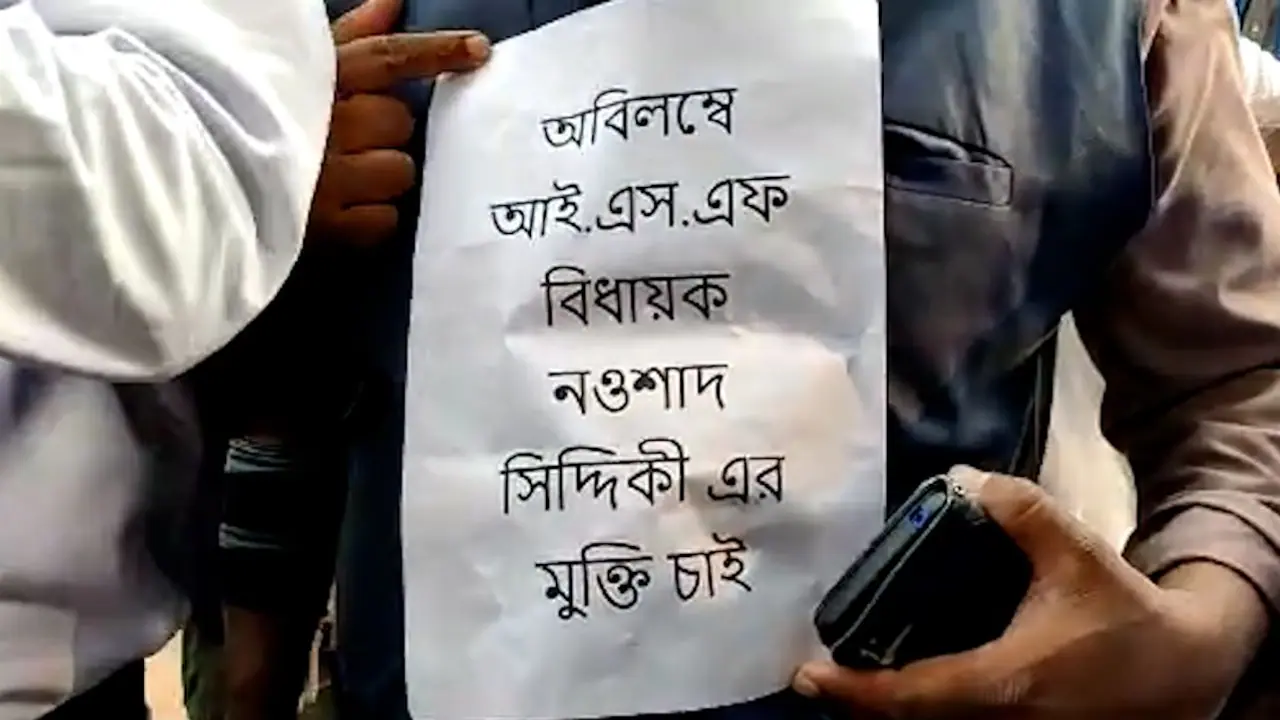 অবিলম্বে
আই.এস.এফ
বিধায়ক
নওশাদ
সিদ্দিকী এর
মুক্তি চাই